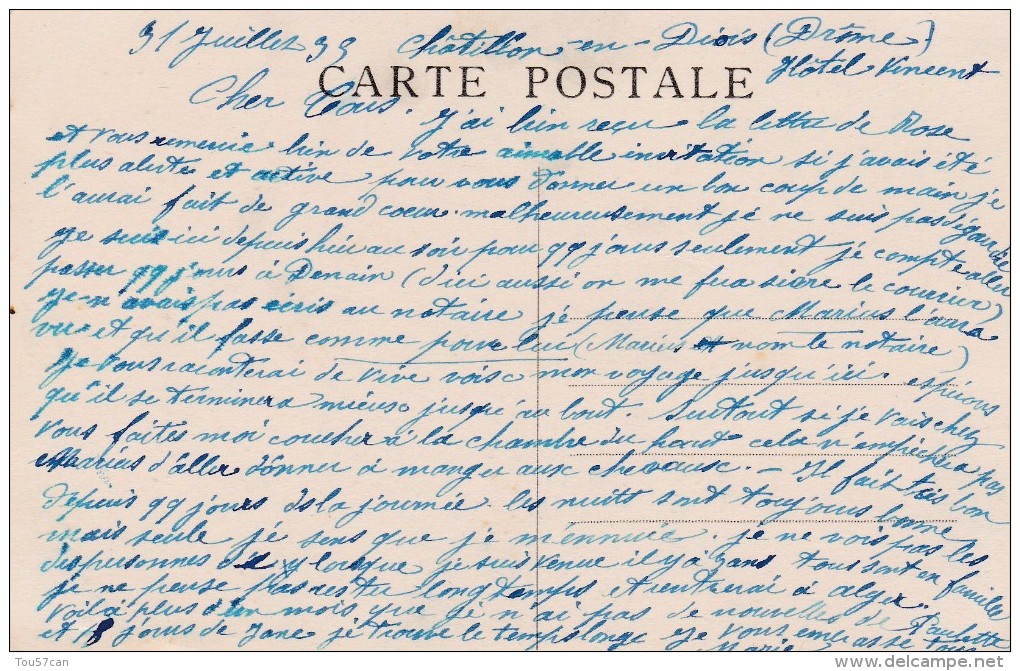 31 Juillet 33 Châtillon-en-Diois (Drôme)
Hôtel Vincent
CARTE POSTALE
Cher Tous.
J'ai bien reçu la lettre de Rose
et vous remercie bien de votre aimable invitation si j'avais été
plus alerte et active pour vous donner un bon coup de main je
l'aurai fait de grand coeur. malheureusement je ne suis pas
Je suis ici depuis hier au soir pour qq jours seulement je compte aller
passer qq jours à Denain (d'ici aussi on me fera sivre le courrier)
Je n'avais pas écris au notaire je pense que Marius l'aura
vu et qu'il fasse comme pour lui (Marius et non le notaire)
Je vous raconterai de vive voix mon voyage jusqu'ici espérons
qu'il se terminera mieux jusqu'au bout. Surtout si je vais chez
vous faites moi coucher à la chambre du haut cela n'empêchera pas
Marius d'aller donner à manger aux chevaux. - Il fait très bon
depuis qq jours la journée les nuits sont toujours bonne
mais seule je sens que je m'ennuie. je ne vois pas les
personnes lorsque je suis venue il y a 3 ans tous sont en famille
je ne pense pas rester longtemps et rentrerai à alger
Voilà plus d'un mois que je n'ai pas de nouvelles de Paulette
et 8 jours de Jane je trouve le temps long Je vous embrasse tous
Marie
Tou57can
© delcampe.net